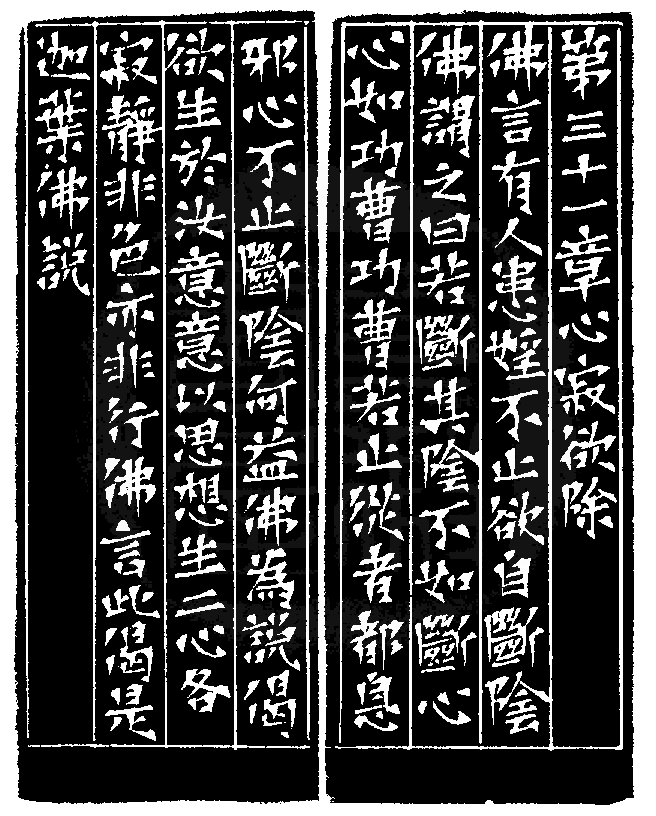 第三十一章心寂欲除
佛言有人患婬不止欲自斷陰
佛謂之曰若斷其陰不如斷心
心如功曹功曹若止從者都息
邪心不止斷陰何益佛為說偈
欲生於汝意意以思想生二心各
寂靜非色亦非行佛言此偈是
迦葉佛說